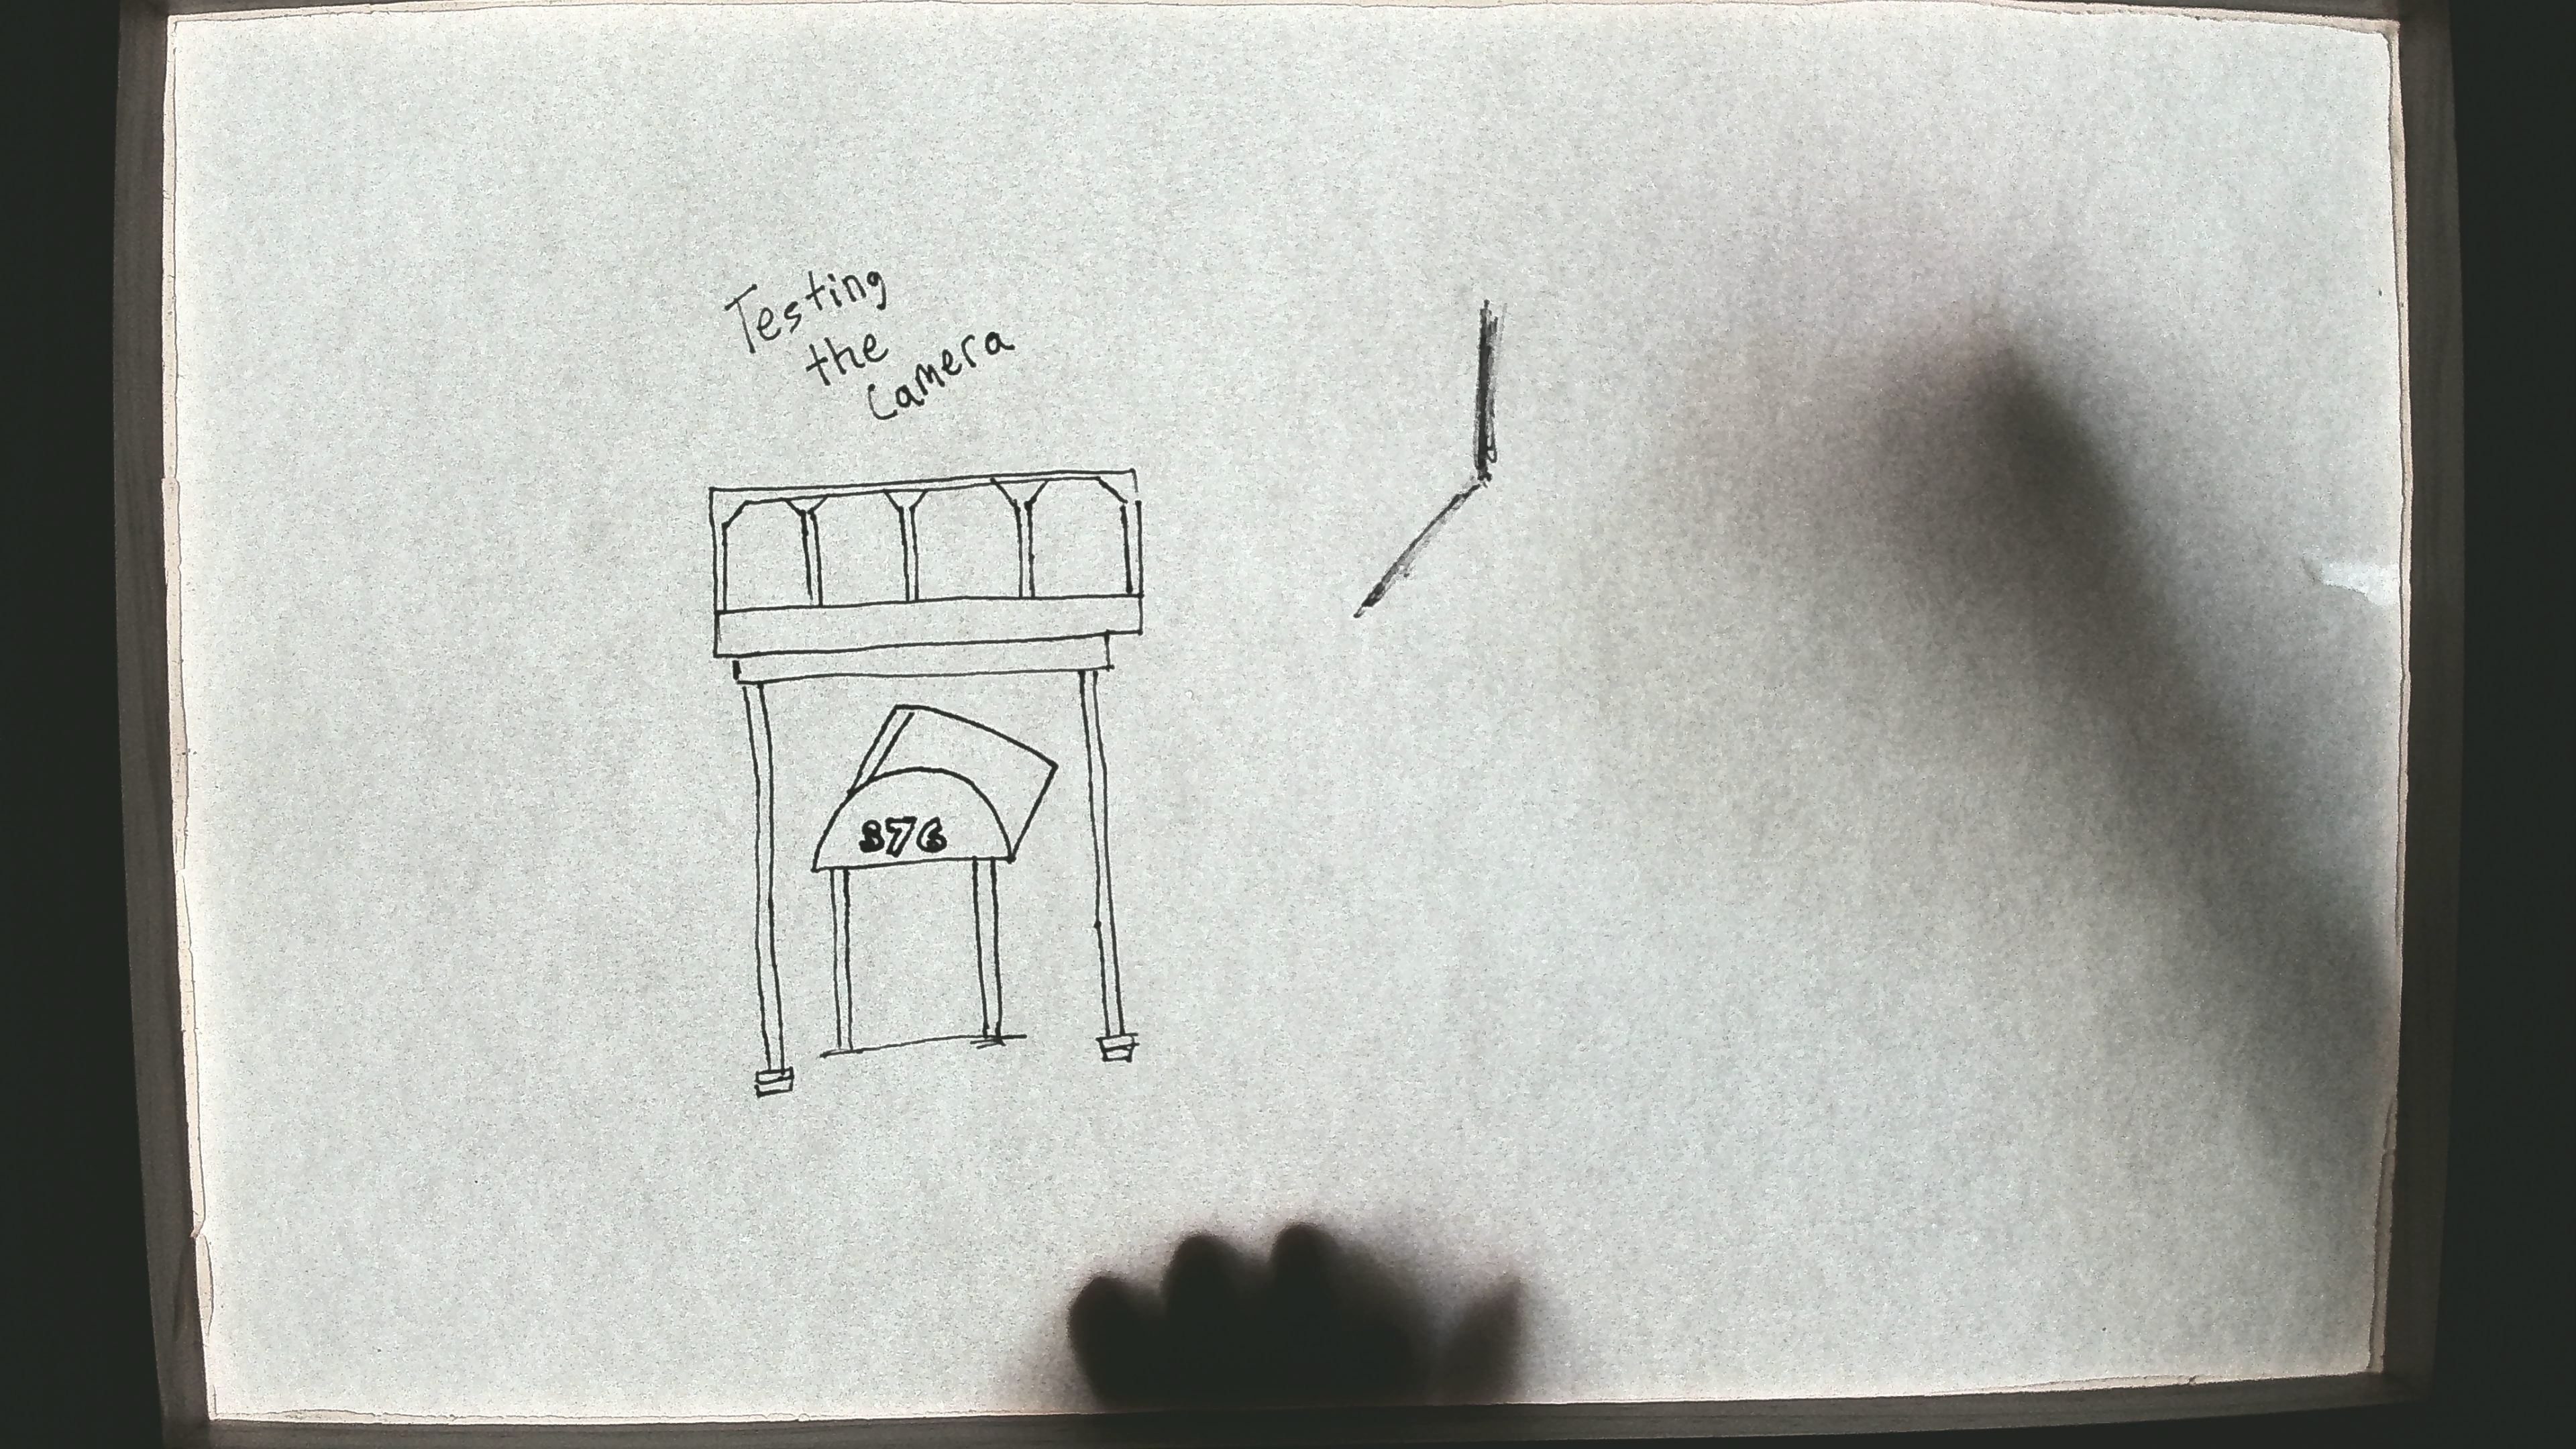 Testing
the
Camera
376